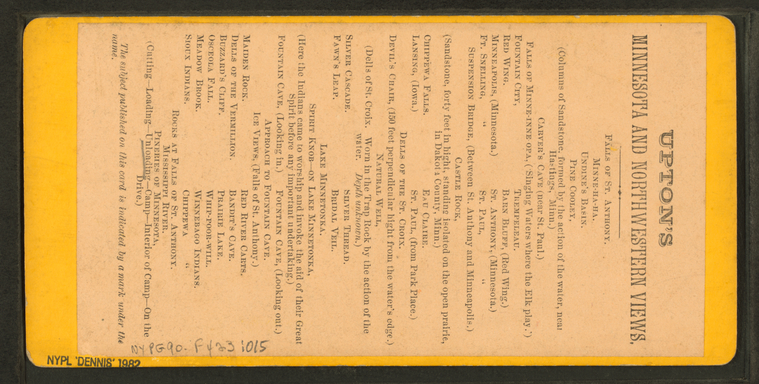 UPTON'S
MINNESOTA AND NORTHWESTERN VIEWS.
FALLS OF ST. ANTHONY.
MINNE-HA-HA.
UNDINE'S BASIN.
PINE COOLEY,
(Columns of Sandstone, formed by the action of the water, near
Hastings, Minn.)
CARVER'S CAVE (near St. Paul.)
FALLS OF MINNE-INNE-OPA, ('Singing Waters where the Elk play.')
FOUNTAIN CITY, TREMPELEAU,
RED WING, BARN BLUFF, (Red Wing.)
MINNEAPOLIS, (Minnesota.) ST. ANTHONY, (Minnesota,)
FT. SNELLING, " ST. PAUL, "
SUSPENSION BRIDGE, (Between St. Anthony and Minneapolis.)
CASTLE ROCK,
(Sandstone, forty feet in hight, standing isolated on the open prairie,
in Dakota County, Minn.)
CHIPPEWA FALLS. EAU CLAIRE.
LANSING, (Iowa.) ST. PAUL, (from Park Place.)
DELLS OF THE ST. CROIX.
DEVIL'S CHAIR, (150 feet perpendicular hight from the water's edge.)
NATURAL WELL,
(Dells of St. Croix. Worn in the Trap Rock by the action of the
water. Depth unknown.)
SILVER CASCADE. SILVER THREAD.
FAWN'S LEAP. BRIDAL VEIL.
LAKE MINNETONKA.
SPIRIT KNOB—ON LAKE MINNETONKA,
(Here the Indians came to worship and invoke the aid of their Great
Spirit before any important undertaking.)
FOUNTAIN CAVE, (Looking in.) FOUNTAIN CAVE, (Looking out.)
APPROACH TO FOUNTAIN CAVE.
ICE VIEWS, (Falls of St. Anthony.)
MAIDEN ROCK. RED RIVER CARTS.
DELLS OF THE VERMILLION. BANDIT'S CAVE.
BUZZARD'S CLIFF. PRAIRIE LAKE.
OSCEOLA FALL. WHIP-POOR-WILL.
MEADOW BROOK. WINNEBAGO INDIANS.
SIOUX INDIANS. CHIPPEWA "
ROCKS AT FALLS OF ST. ANTHONY.
MISSISSIPPI RIVER.
PINERIES OF MINNESOTA,
(Cutting—Loading—Unloading—Camp—Interior of Camp—On the
Drive.)
The subject published on this card is indicated by a mark under the
name.
NYPG90-F423 1015
NYPL 'DENNIS' 1982